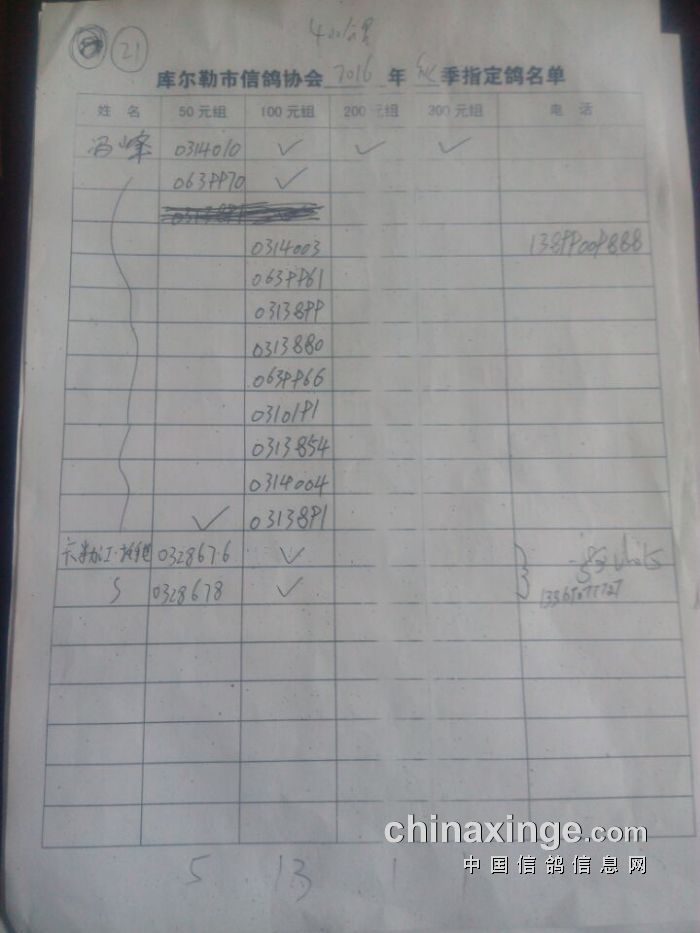 21
库尔勒市信鸽协会 2016 年 秋 季指定鸽名单
姓 名 50元组 100元组 200元组 300元组 电 话
冯峰 0314010 ✓ ✓ ✓
0639970 ✓
0314003 13899009888
0639961
0313899
0313880
0639966
0310191
0313854
0314004
✓ 0313891
0328676 ✓
0328678 ✓
5 13 1 1
chinaxinge.com
中国信鸽信息网